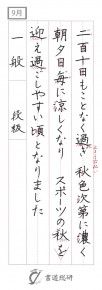 9月
二百十日もことなく過ぎ 秋色次第に濃く
朝夕日毎に涼しくなり スポーツの秋を
迎え過ごしやすい頃となりました
一般 段級
書道総研